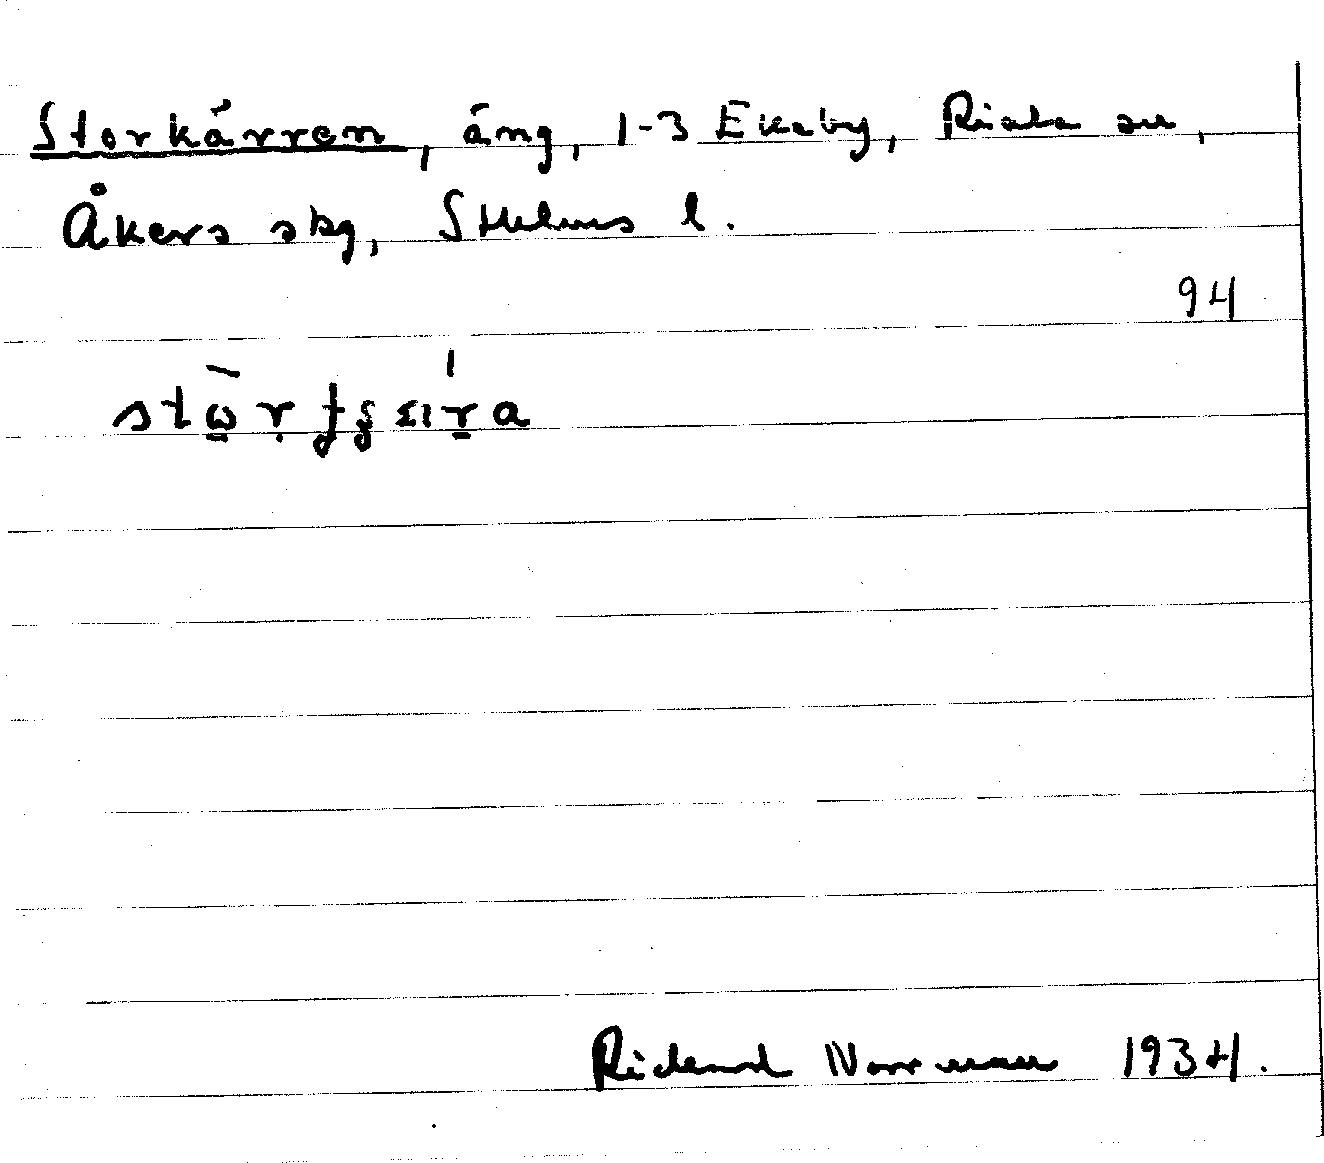 Storkärren, äng, 1-3 Ekeby, Riala sn,
Åkers skg, Sthlms l.
94
Richard Norrman 1934.